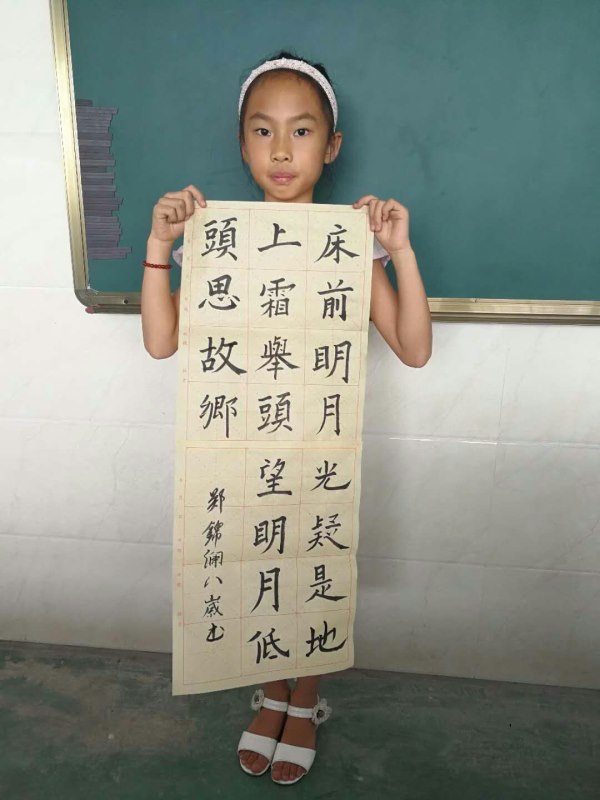 床前明月光疑是地
上霜舉頭望明月低
頭思故鄉
錦瀾八歲書